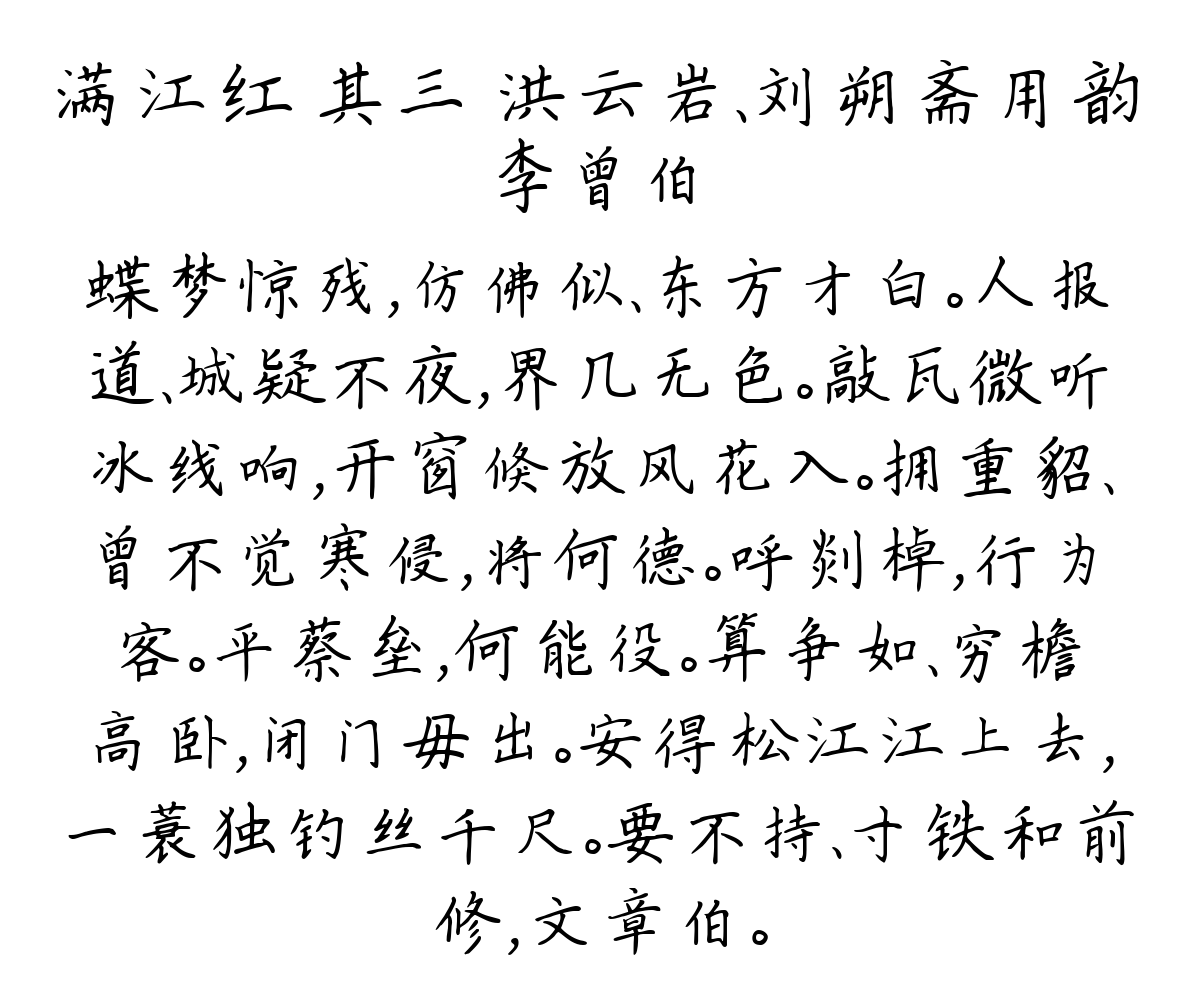 满江红 其三 洪云岩、刘朔斋用韵
李曾伯
蝶梦惊残,仿佛似、东方才白。人报
道、城疑不夜,界几无色。敲瓦微听
冰线响,开窗倏放风花入。拥重貂、
曾不觉寒侵,将何德。呼剡棹,行为
客。平蔡垒,何能役。算争如、穷檐
高卧,闭门毋出。安得松江江上去,
一蓑独钓丝千尺。要不持、寸铁和前
修,文章伯。